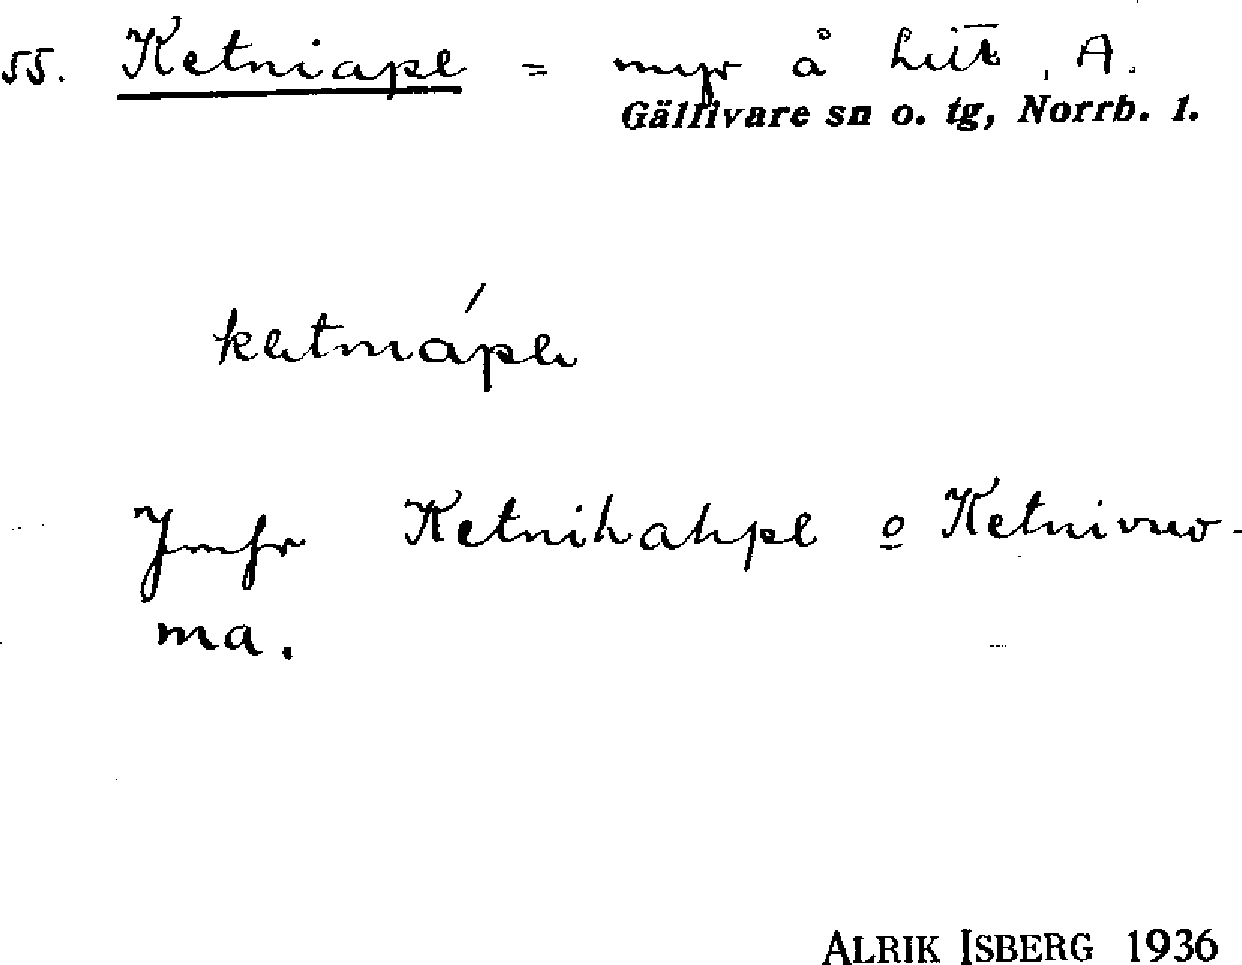 55. Ketniape = myr å Litt, A.
Gällivare sn o. tg, Norrb. 1.
ketniápe
Jmfr Ketnihahpe o Ketnivuo-
ma.
ALRIK ISBERG 1936